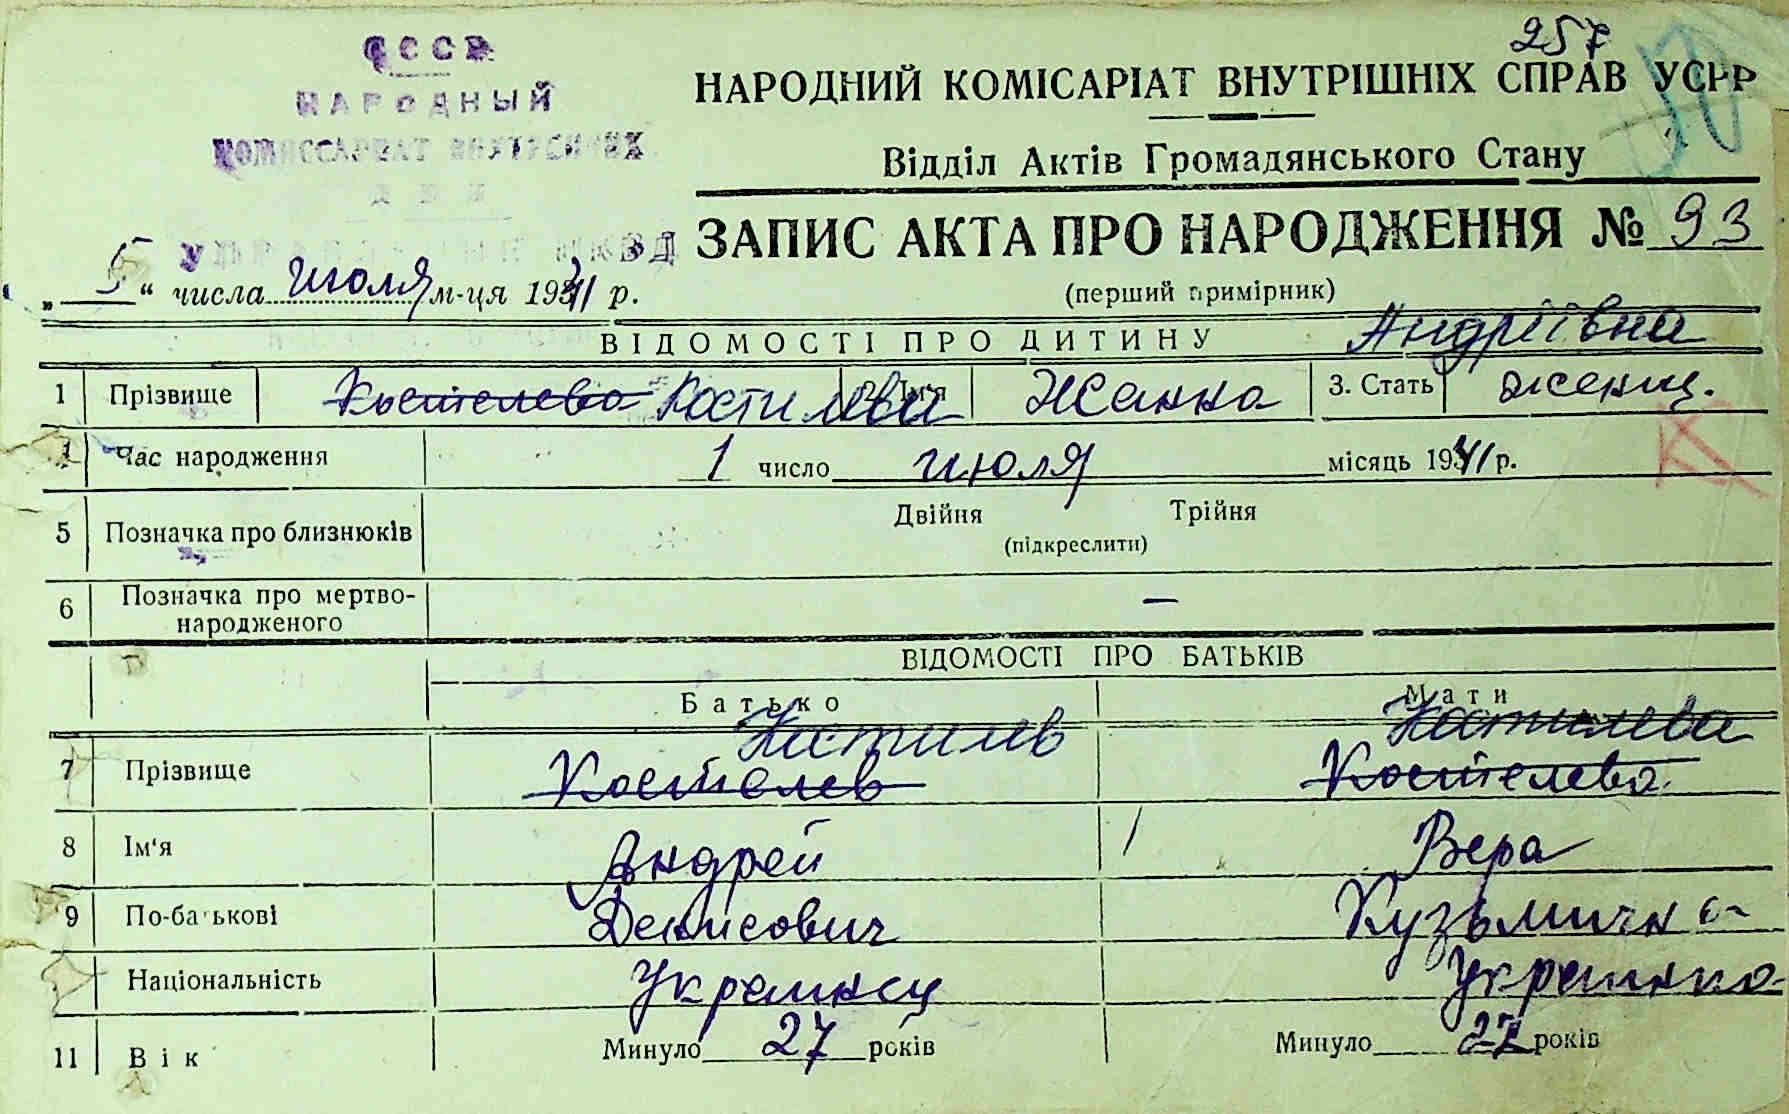 257
СССР
НАРОДНЫЙ
КОМИССАРИАТ ВНУТРЕННИХ
ДЕЛ
НАРОДНИЙ КОМІСАРІАТ ВНУТРІШНІХ СПРАВ УСРР
Відділ Актів Громадянського Стану
ЗАПИС АКТА ПРО НАРОДЖЕННЯ № 93
(перший примірник)
„ 5 “ числа июля м-ця 1941 р.
ВІДОМОСТІ ПРО ДИТИНУ Андріївна
1 Прізвище Костелева Костилева 2. Ім'я Жанна 3. Стать женщ.
4 Час народження 1 число июля місяць 1941 р.
5 Позначка про близнюків Двійня Трійня
(підкреслити)
6 Позначка про мертво-
народженого —
ВІДОМОСТІ ПРО БАТЬКІВ
Батько Мати
Костилев Костилева
7 Прізвище Костелев Костелева
8 Ім'я Андрей Вера
9 По-батькові Денисович Кузьмична
Національність Украинец Украинка
11 Вік Минуло 27 років Минуло 27 років